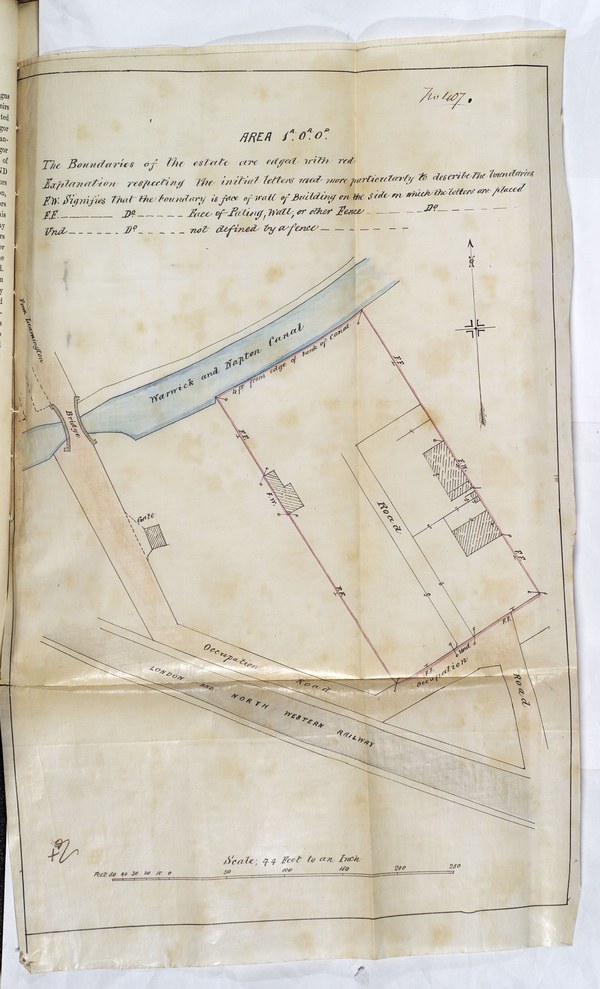 No 407.
AREA 1ᴬ. 0ᴿ. 0ᴾ
The Boundaries of the estate are edged with red
Explanation respecting the initial letters used more particularly to describe the boundaries
F.W. Signifies that the boundary is face of wall of Building on the side on which the letters are placed
F.F. Do Face of Paling, Wall, or other Fence Do
Und Do not defined by a fence
From Leamington
Warwick and Napton Canal
4ft from edge of bank of Canal
Bridge
N
F.F.
F.F.
F.W.
F.W.
Gate
Road
F.F.
F.F.
F.F.
Und
F.F.
Occupation
Road
Occupation
Road
LONDON AND NORTH WESTERN RAILWAY
Scale, 44 Feet to an Inch
Feet 50 40 30 20 10 0 50 100 150 200 250